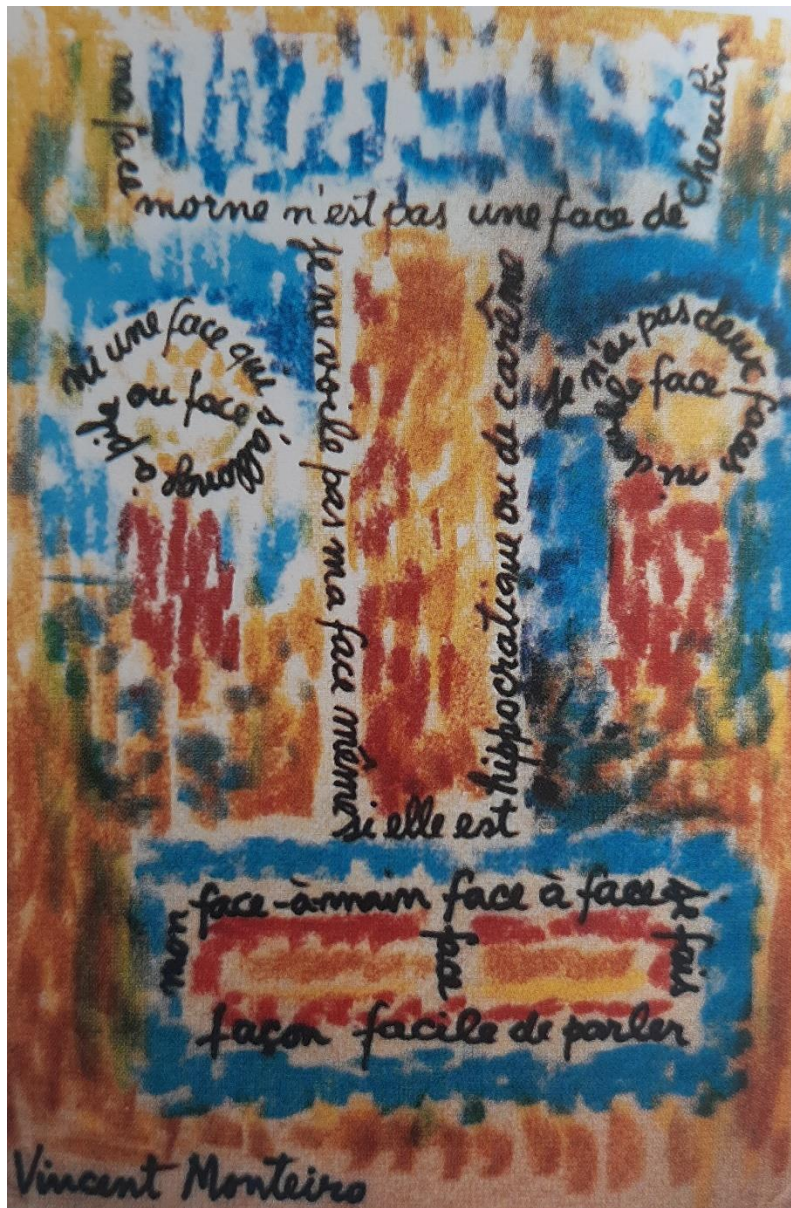 ma face
morne n'est pas une face de
cherubin
ni une face qui s'allonge à pif
ou face
Je n'ai pas deux faces ni double
face
Je ne voile pas ma face même
si elle est
hippocratique ou de carême
non
face-à-main face à face
je fais
face
façon facile de parler
Vincent Monteiro